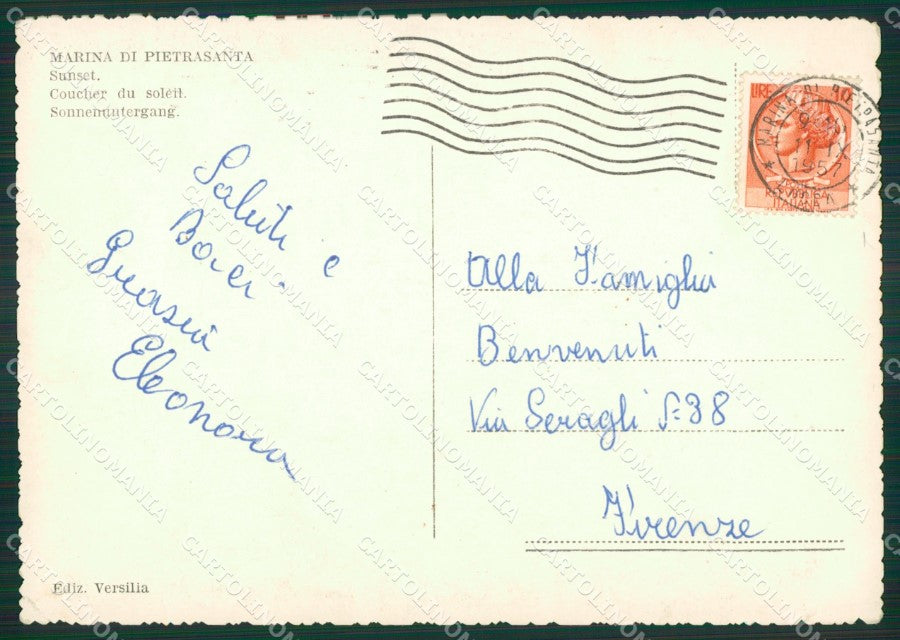 MARINA DI PIETRASANTA
Sunset.
Coucher du soleil.
Sonnenuntergang.
Saluti e
Baci
Eleonora
LIRE 10
MARINA DI PIETRASANTA
1957
ITALIANA
Alla Famiglia
Benvenuti
Via Seragli N= 38
Firenze
Ediz. Versilia
CARTOLINOMANIA